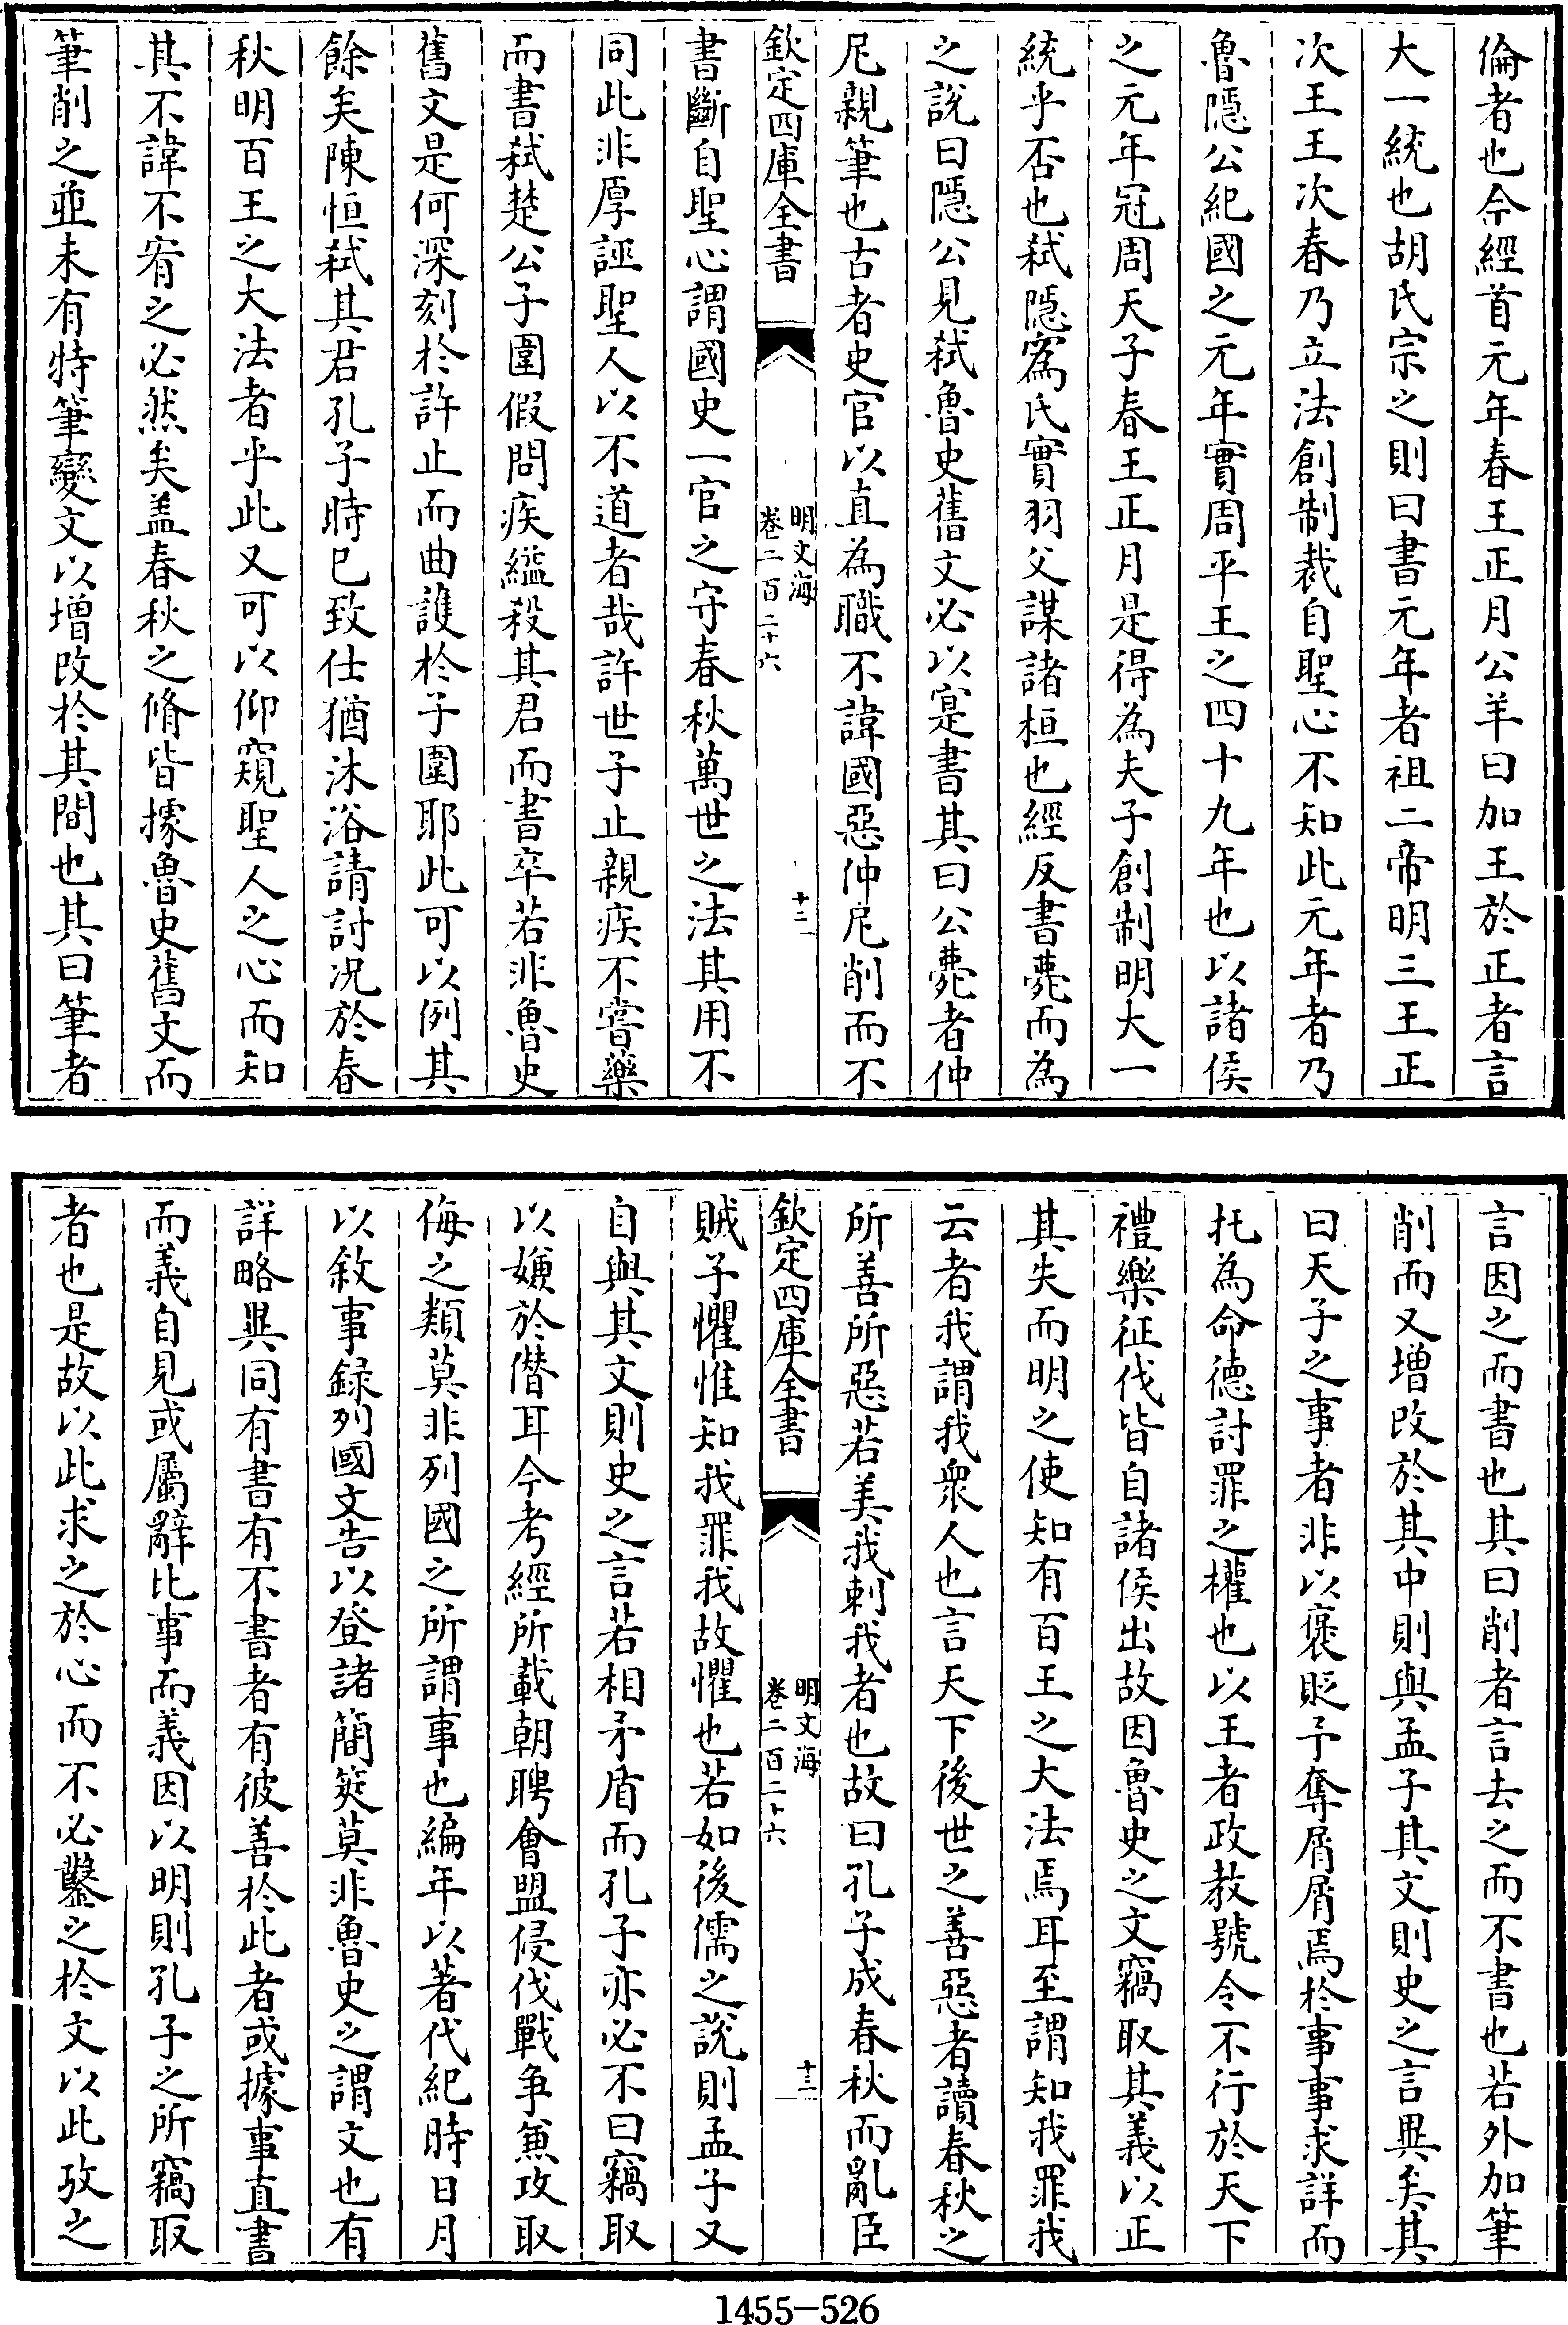 倫者也今經首元年春王正月公羊曰加王於正者言
大一統也胡氏宗之則曰書元年者祖二帝明三王正
次王王次春乃立法創制裁自聖心不知此元年者乃
魯隱公紀國之元年實周平王之四十九年也以諸侯
之元年冠周天子春王正月是得為夫子創制明大一
統乎否也弑隱寪氏實羽父謀諸桓也經反書薨而為
之說曰隱公見弑魯史舊文必以寔書其曰公薨者仲
尼親筆也古者史官以直為職不諱國惡仲尼削而不
欽定四庫全書
明文海
卷二百二十六
十二
書斷自聖心謂國史一官之守春秋萬世之法其用不
同此非厚誣聖人以不道者哉許世子止親疾不嘗藥
而書弑楚公子圍假問疾縊殺其君而書卒若非魯史
舊文是何深刻於許止而曲護於子圍耶此可以例其
餘矣陳恒弑其君孔子時已致仕猶沐浴請討况於春
秋明百王之大法者乎此又可以仰窺聖人之心而知
其不諱不宥之必然矣盖春秋之脩皆據魯史舊文而
筆削之並未有特筆變文以增改於其間也其曰筆者
言因之而書也其曰削者言去之而不書也若外加筆
削而又增改於其中則與孟子其文則史之言異矣其
曰天子之事者非以褒貶予奪屑屑焉於事事求詳而
托為命德討罪之權也以王者政教號令不行於天下
禮樂征伐皆自諸侯出故因魯史之文竊取其義以正
其失而明之使知有百王之大法焉耳至謂知我罪我
云者我謂我衆人也言天下後世之善惡者讀春秋之
所善所惡若美我刺我者也故曰孔子成春秋而亂臣
欽定四庫全書
明文海
卷二百二十六
十二
賊子懼惟知我罪我故懼也若如後儒之說則孟子又
自與其文則史之言若相矛盾而孔子亦必不曰竊取
以嫌於僭耳今考經所載朝聘會盟侵伐戰争兼攻取
侮之類莫非列國之所謂事也編年以著代紀時日月
以敘事録列國文告以登諸簡筴莫非魯史之謂文也有
詳略異同有書有不書者有彼善於此者或據事直書
而義自見或屬辭比事而義因以明則孔子之所竊取
者也是故以此求之於心而不必鑿之於文以此攷之
1455-526